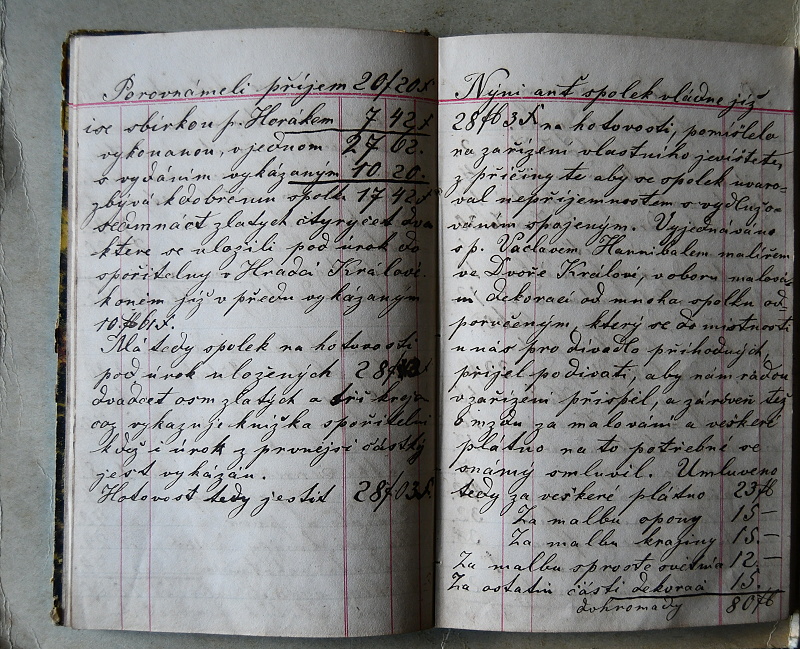 Porovnámeli příjem 20/20 x
ise sbírkou p. Horákem 7 42 x
vykonanou, v jednom 27 62.
s vydáním vykázaným 10 20.
zbývá k dobrému spolk 17 42 x
sedmnáct zlatých čtyrycet dva
ktere se uložili pod úrok do
spořitelny v Hradci Králové.
koncem již v předu vykázaným
10 f 61 x.
Má tedy spolek na hotovosti
pod úrok uložených 28
dvadcet osm zlatých a tři krejc
coz vykazuje knížka spořitelní
když i úrok z prvnejsi částky
jest vykázán.
Hotovost tedy jestit 28 f 03 x.
Nyni anť spolek vládne již
28 f 63 x na hotovosti, pomíšlelo
na zařízení vlastního jevište
z příčiny te aby se spolek uvaro-
val nepříjemnostem s vydlužo-
váním spojeným. Vyjednáváno
s p. Václavem Hannibalem malířem
ve Dvoře Králové, v oboru malová-
ní dekoraci od mnoha spolku od-
poručeným, který se do mistnosti
u nás pro divadlo příhodných,
přijel podívati, aby nám rádou
v zařízení prispěl, a zároveň též
o mzdu za malování a veškeré
plátno na to potrebné se
snámy smluvil. Umluveno
tedy za veškeré plátno 23 f
Za malbu opony 15 —
Za malbu krajiny 15. —
Za malbu sprosté svetnice 12. —
Za ostatní části dekorací 15.
dohromady 80 f